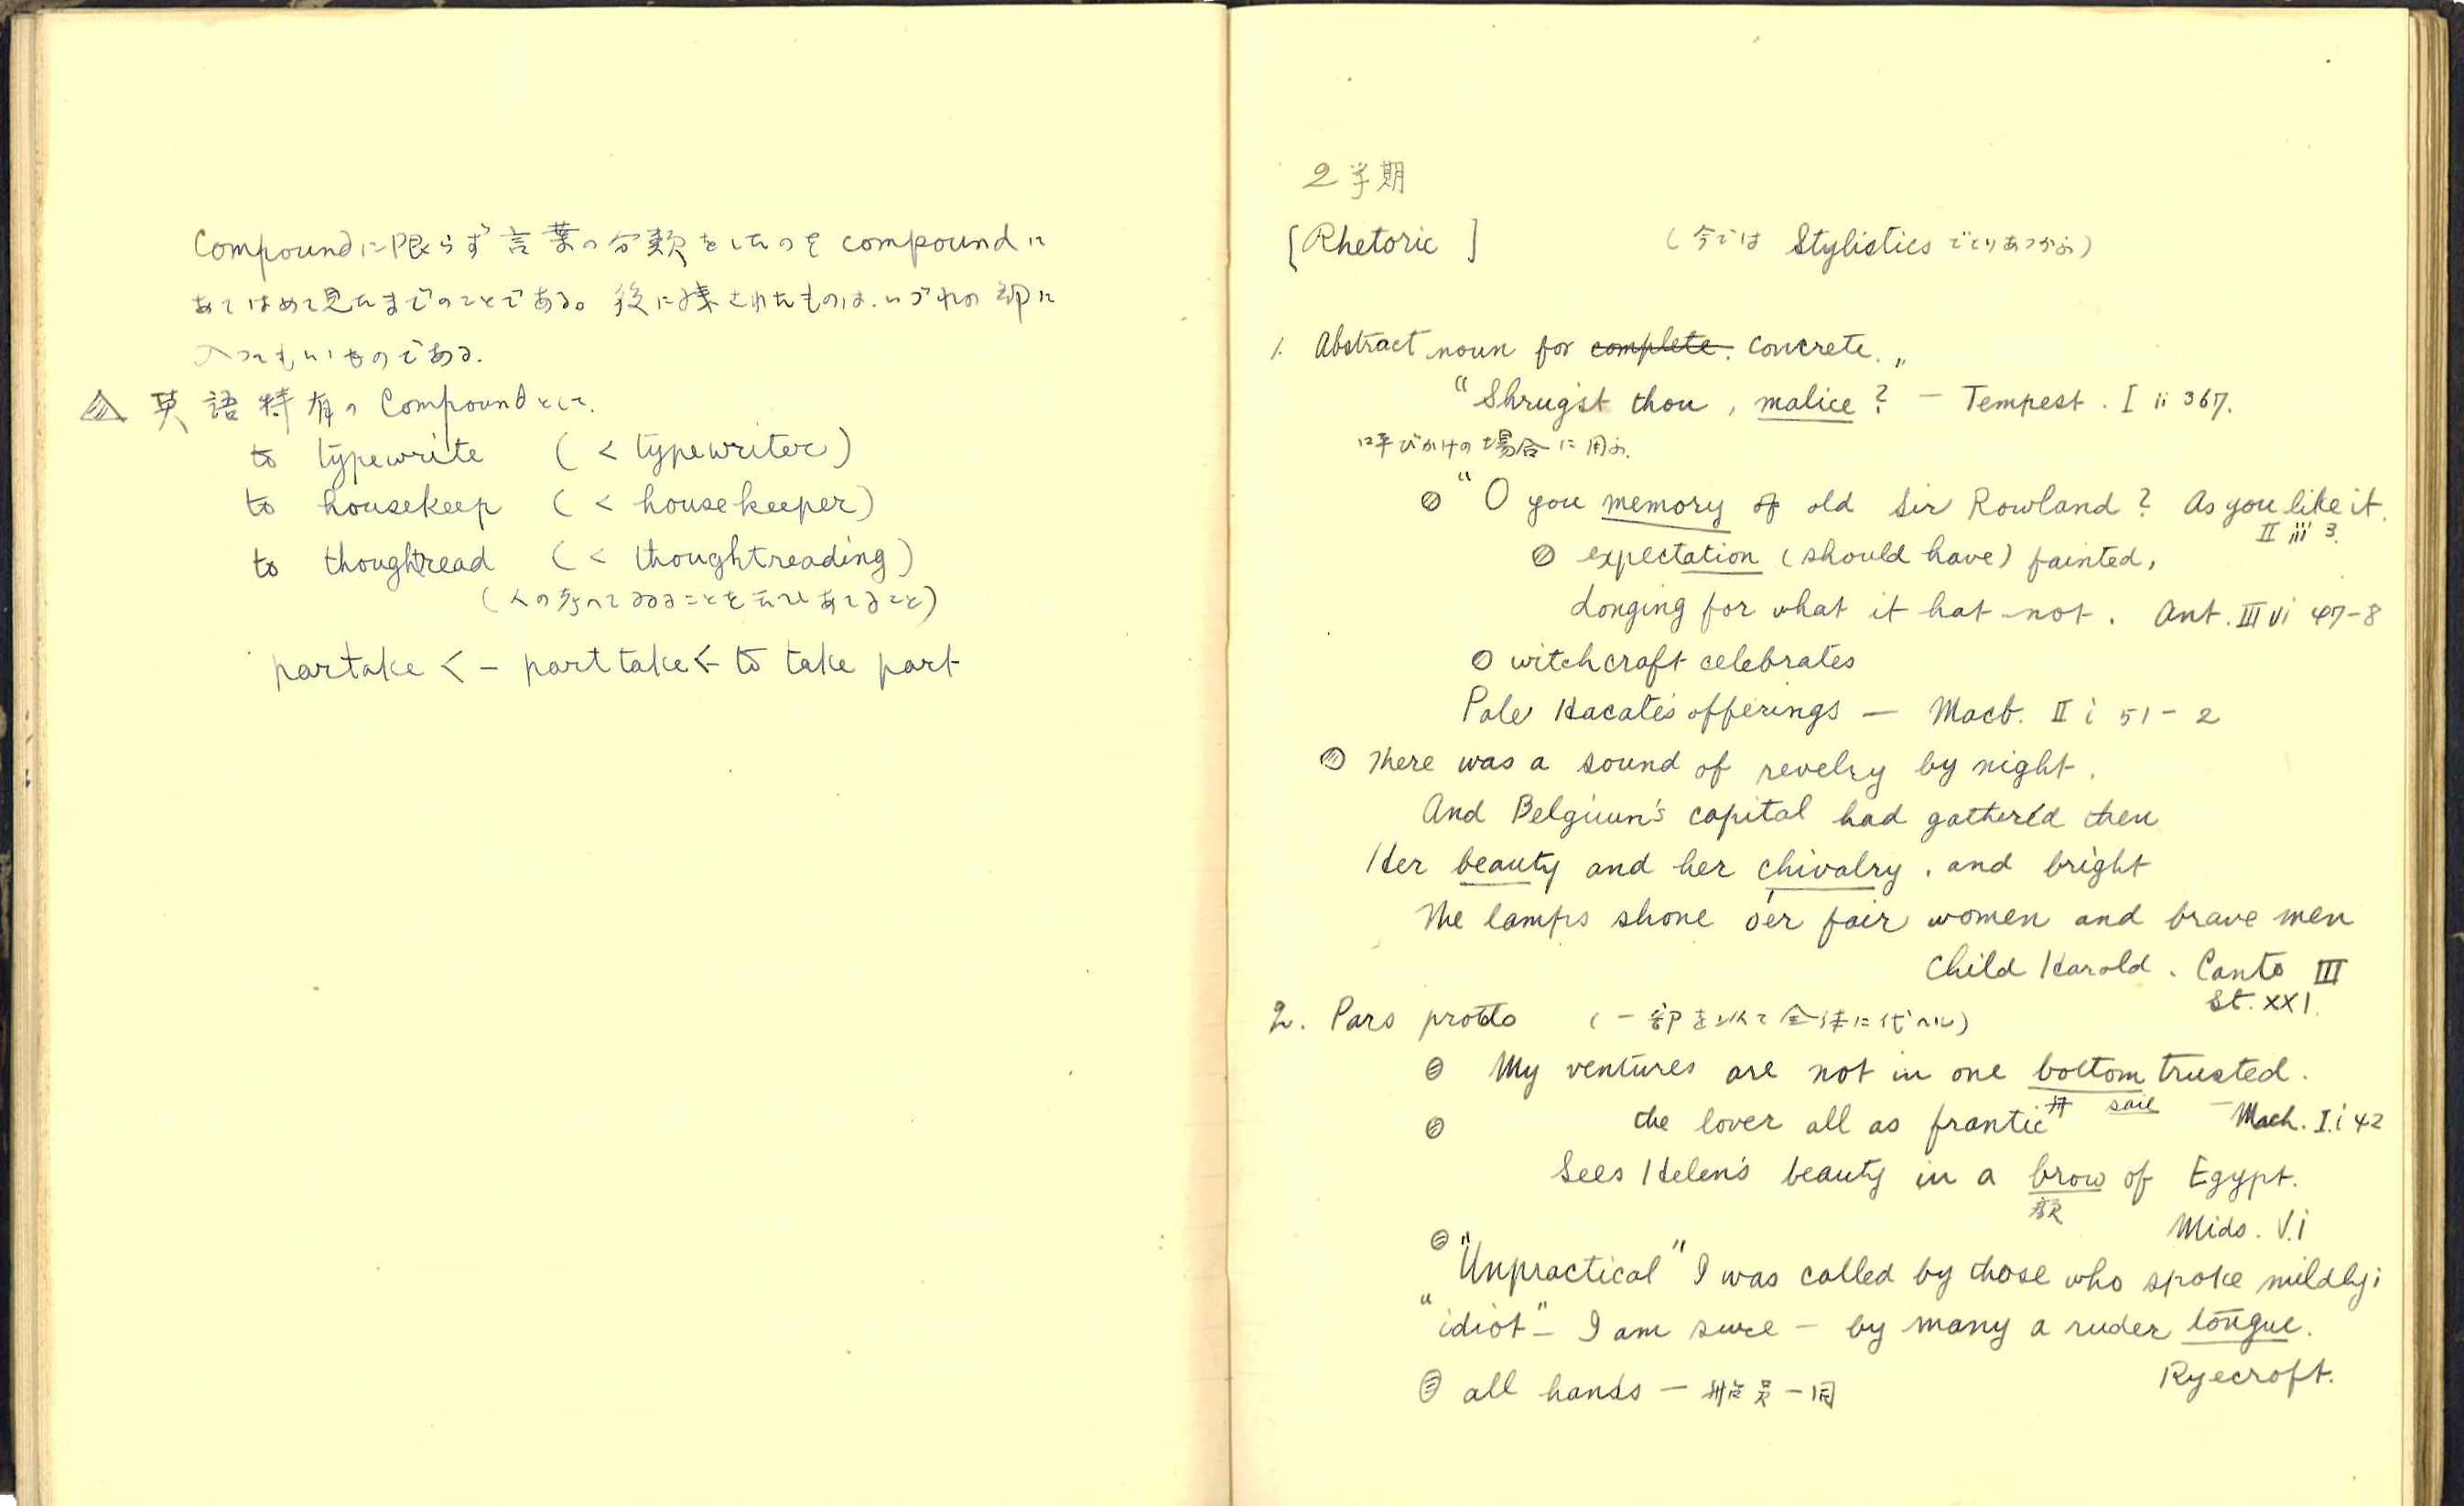 Compoundに限らず言葉の分類をしたのをcompoundに
あてはめて見たまでのことである。後に残されたものは、いづれの部に
入ってもいいものである.
英語特有のCompoundとして.
to typewrite (< typewriter)
to housekeep (< housekeeper)
to thoughtread (< thoughtreading)
(人の考へてゐることを云ひあてること)
partake < – part take < to take part
2学期
[Rhetoric] (今では Stylistics でとりあつかふ)
1. Abstract noun for complete. concrete. „
“Shrugst thou, malice? – Tempest. I ii 367.
呼びかけの場合に用ふ.
“O you memory of old Sir Rowland? As you like it.
II iii 3.
expectation (should have) fainted,
Longing for what it hat not. Ant. III vi 47-8
witchcraft celebrates
Pale Hacate's offerings — Macb. II i 51-2
There was a sound of revelry by night.
And Belgium's capital had gather'd then
Her beauty and her chivalry, and bright
The lamps shone o'er fair women and brave men
Child Harold. Canto III
St. XXI.
2. Pars prototo (一部を以て全体に代へル)
My ventures are not in one bottom trusted.
舟 sail – Mach. I.i 42
the lover all as frantic
Sees Helen's beauty in a brow of Egypt.
額
Mids. V.i
"Unpractical" I was called by those who spoke mildly;
"idiot" – I am sure – by many a ruder tongue.
Ryecroft.
all hands — 船員一同